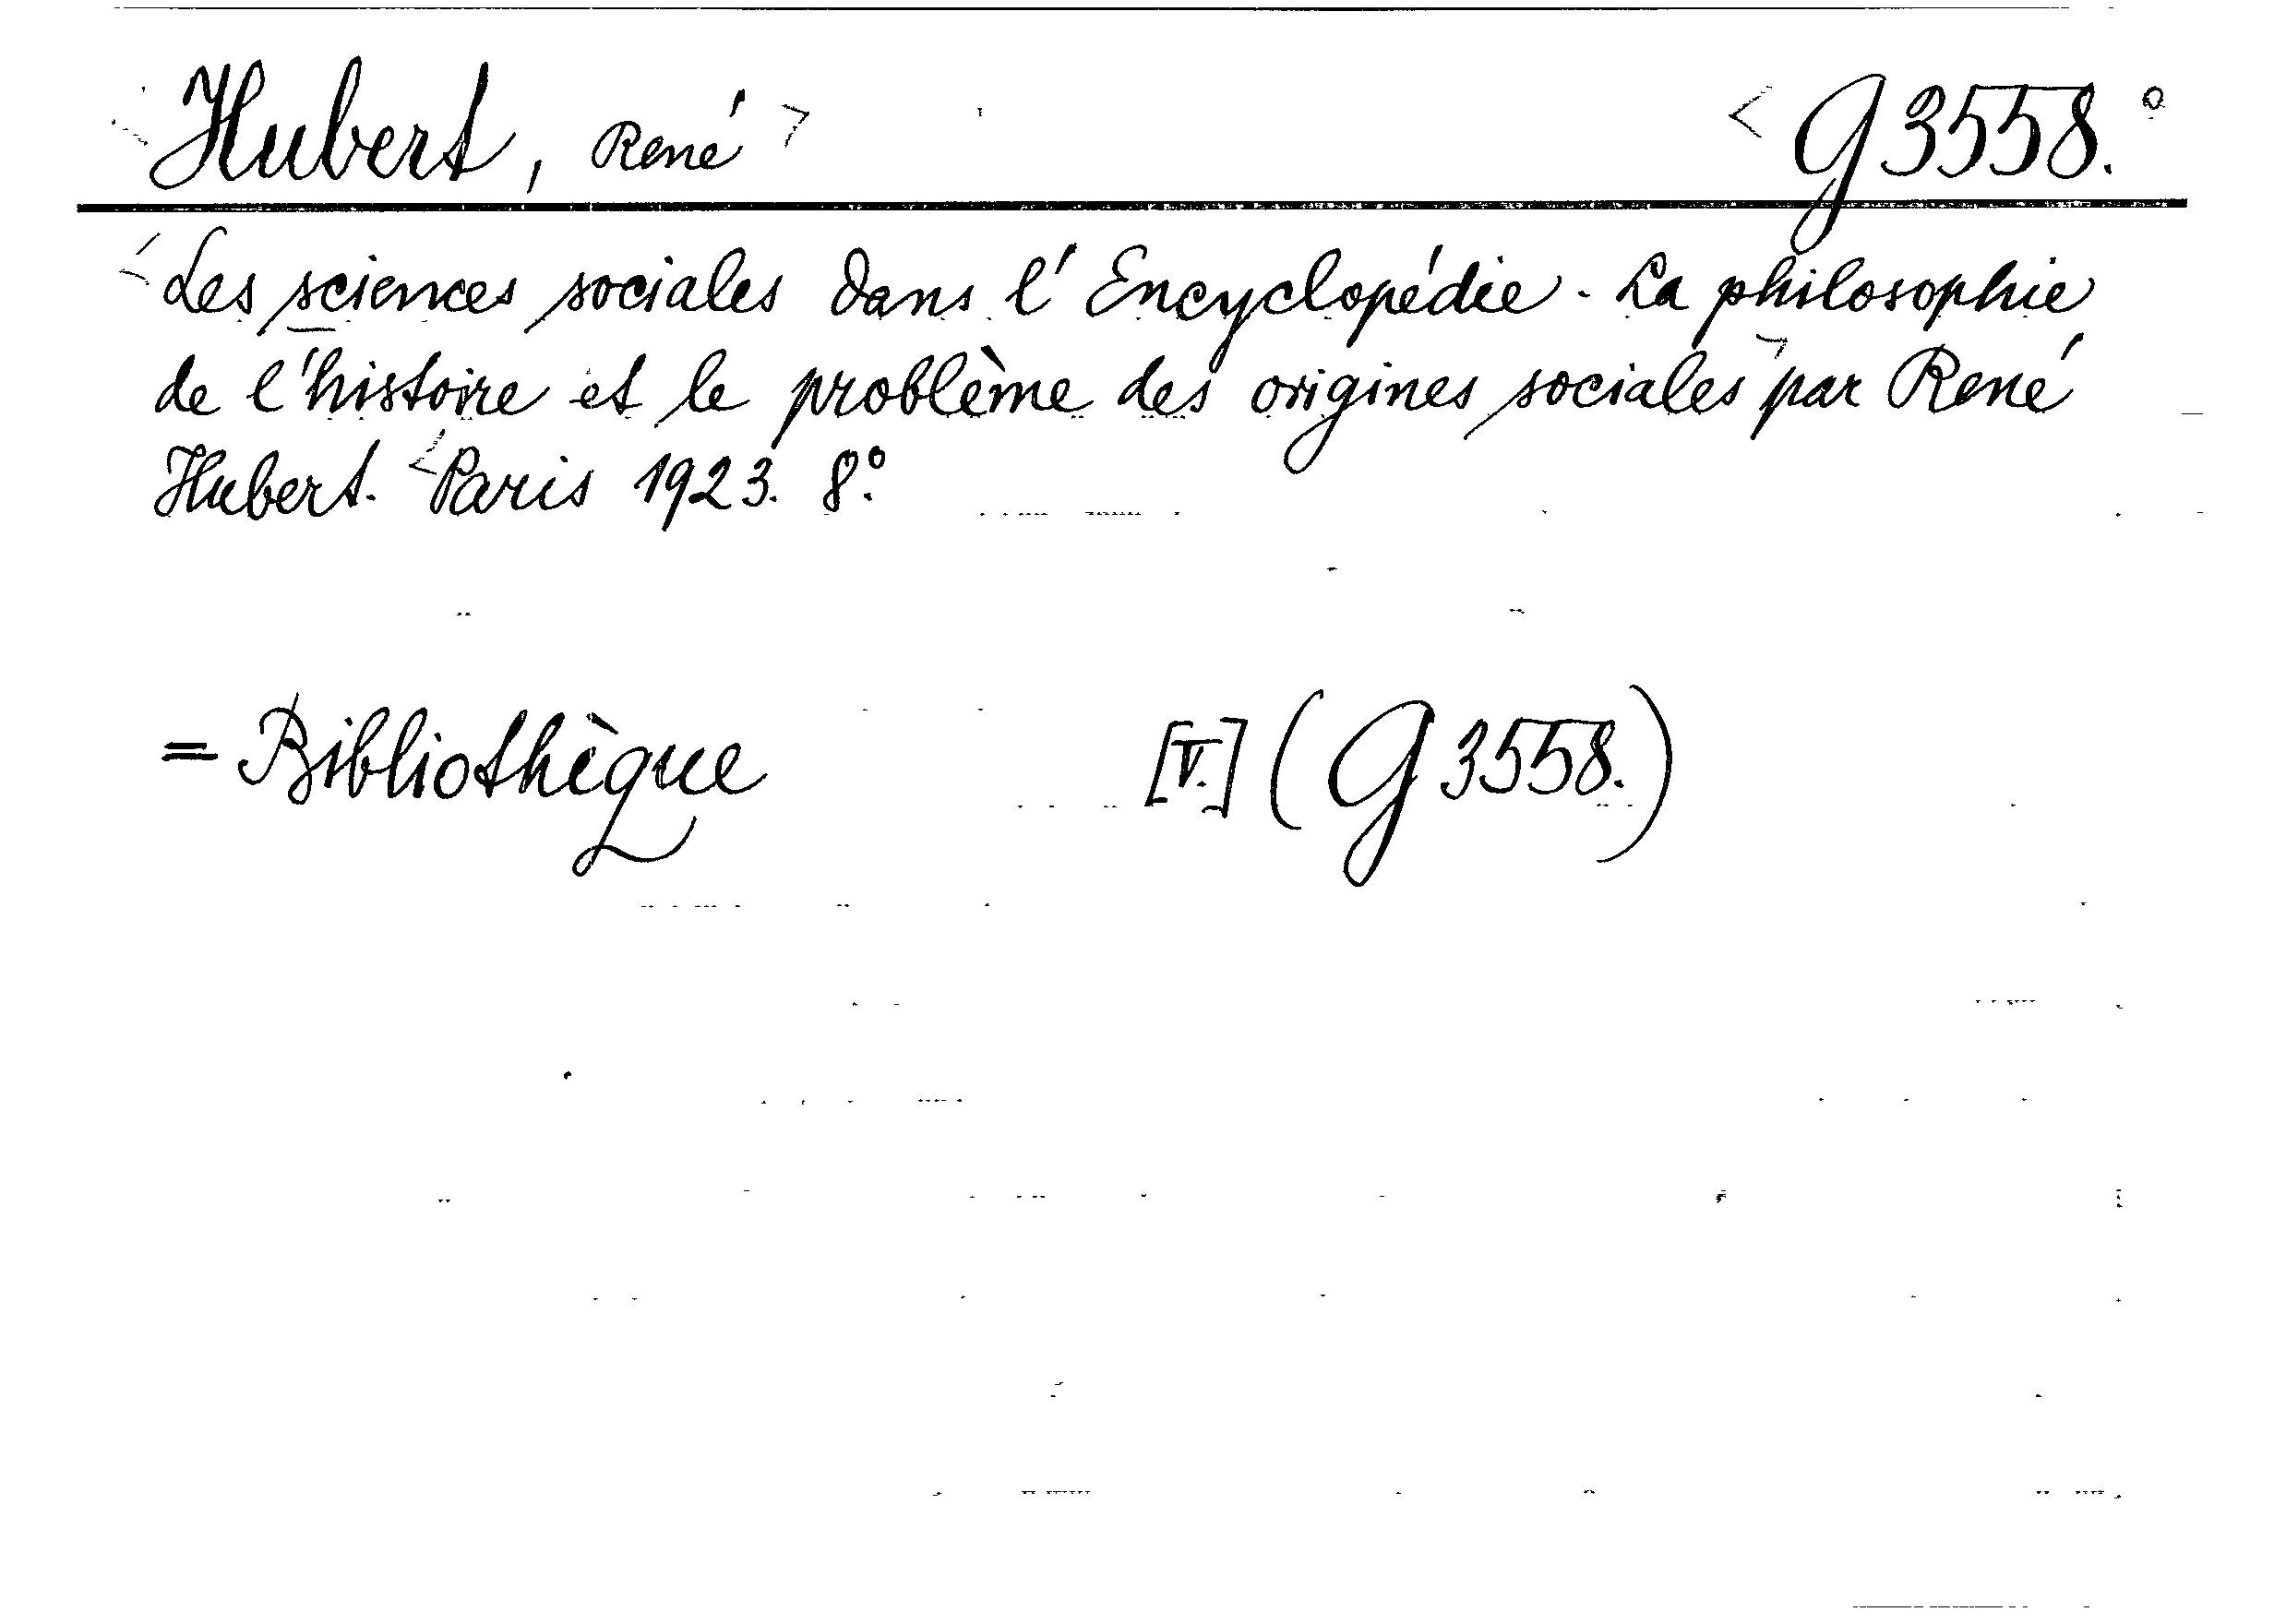 Hubert, René G 3558.
Les sciences sociales dans l'Encyclopédie. La philosophie
de l'histoire et le problème des origines sociales par René
Hubert. Paris 1923. 8.º
= Bibliothèque [V.] (G 3558.)